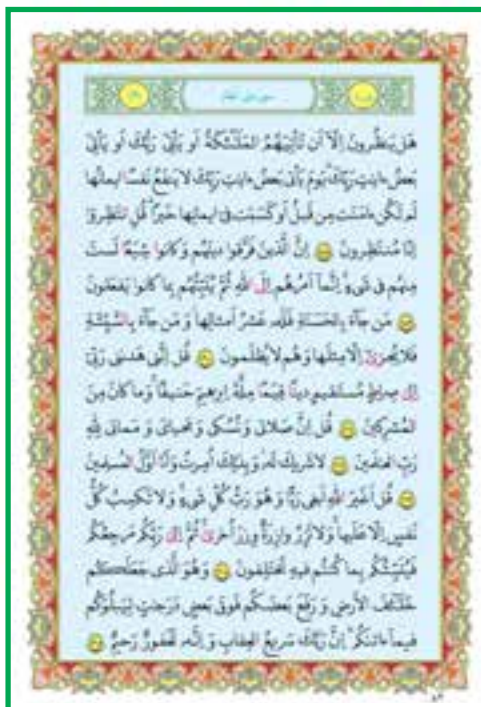 هَل يَنظُرونَ إِلّا أَن تَأتِيَهُمُ المَلٰئِكَةُ أَو يَأتِىَ رَبُّكَ أَو يَأتِىَ
بَعضُ ءايٰتِ رَبِّكَ يَومَ يَأتى بَعضُ ءايٰتِ رَبِّكَ لا يَنفَعُ نَفسًا ايمانُها
لَم تَكُن ءامَنَت مِن قَبلُ أَو كَسَبَت فى ايمانِها خَيرًا قُلِ انتَظِروا
إِنّا مُنتَظِرونَ إِنَّ الَّذينَ فَرَّقوا دينَهُم وَ كانوا شِيَعًا لَستَ
مِنهُم فى شَىءٍ إِنَّما أَمرُهُم إِلَى اللهِ ثُمَّ يُنَبِّئُهُم بِما كانوا يَفعَلونَ
مَن جاءَ بِالحَسَنَةِ فَلَهُ عَشرُ أَمثالِها وَ مَن جاءَ بِالسَّيِّئَةِ
فَلا يُجزىٰ إِلّا مِثلَها وَ هُم لا يُظلَمونَ قُل إِنَّنى هَدىٰنى رَبّى
إِلىٰ صِراطٍ مُستَقيمٍ دينًا قِيَمًا مِلَّةَ إِبرٰهيمَ حَنيفًا وَ ما كانَ مِنَ
المُشرِكينَ قُل إِنَّ صَلاتى وَ نُسُكى وَ مَحياىَ وَ مَماتى لِلّٰهِ
رَبِّ العٰلَمينَ لا شَريكَ لَهُ وَ بِذٰلِكَ أُمِرتُ وَ أَنَا أَوَّلُ المُسلِمينَ
قُل أَغَيرَ اللهِ أَبغى رَبًّا وَ هُوَ رَبُّ كُلِّ شَىءٍ وَ لا تَكسِبُ كُلُّ
نَفسٍ إِلّا عَلَيها وَ لا تَزِرُ وازِرَةٌ وِزرَ أُخرىٰ ثُمَّ إِلىٰ رَبِّكُم مَرجِعُكُم
فَيُنَبِّئُكُم بِما كُنتُم فيهِ تَختَلِفونَ وَ هُوَ الَّذى جَعَلَكُم
خَلٰئِفَ الأَرضِ وَ رَفَعَ بَعضَكُم فَوقَ بَعضٍ دَرَجٰتٍ لِيَبلُوَكُم
فيما ءاتىٰكُم إِنَّ رَبَّكَ سَريعُ العِقابِ وَ إِنَّهُ لَغَفورٌ رَحيمٌ